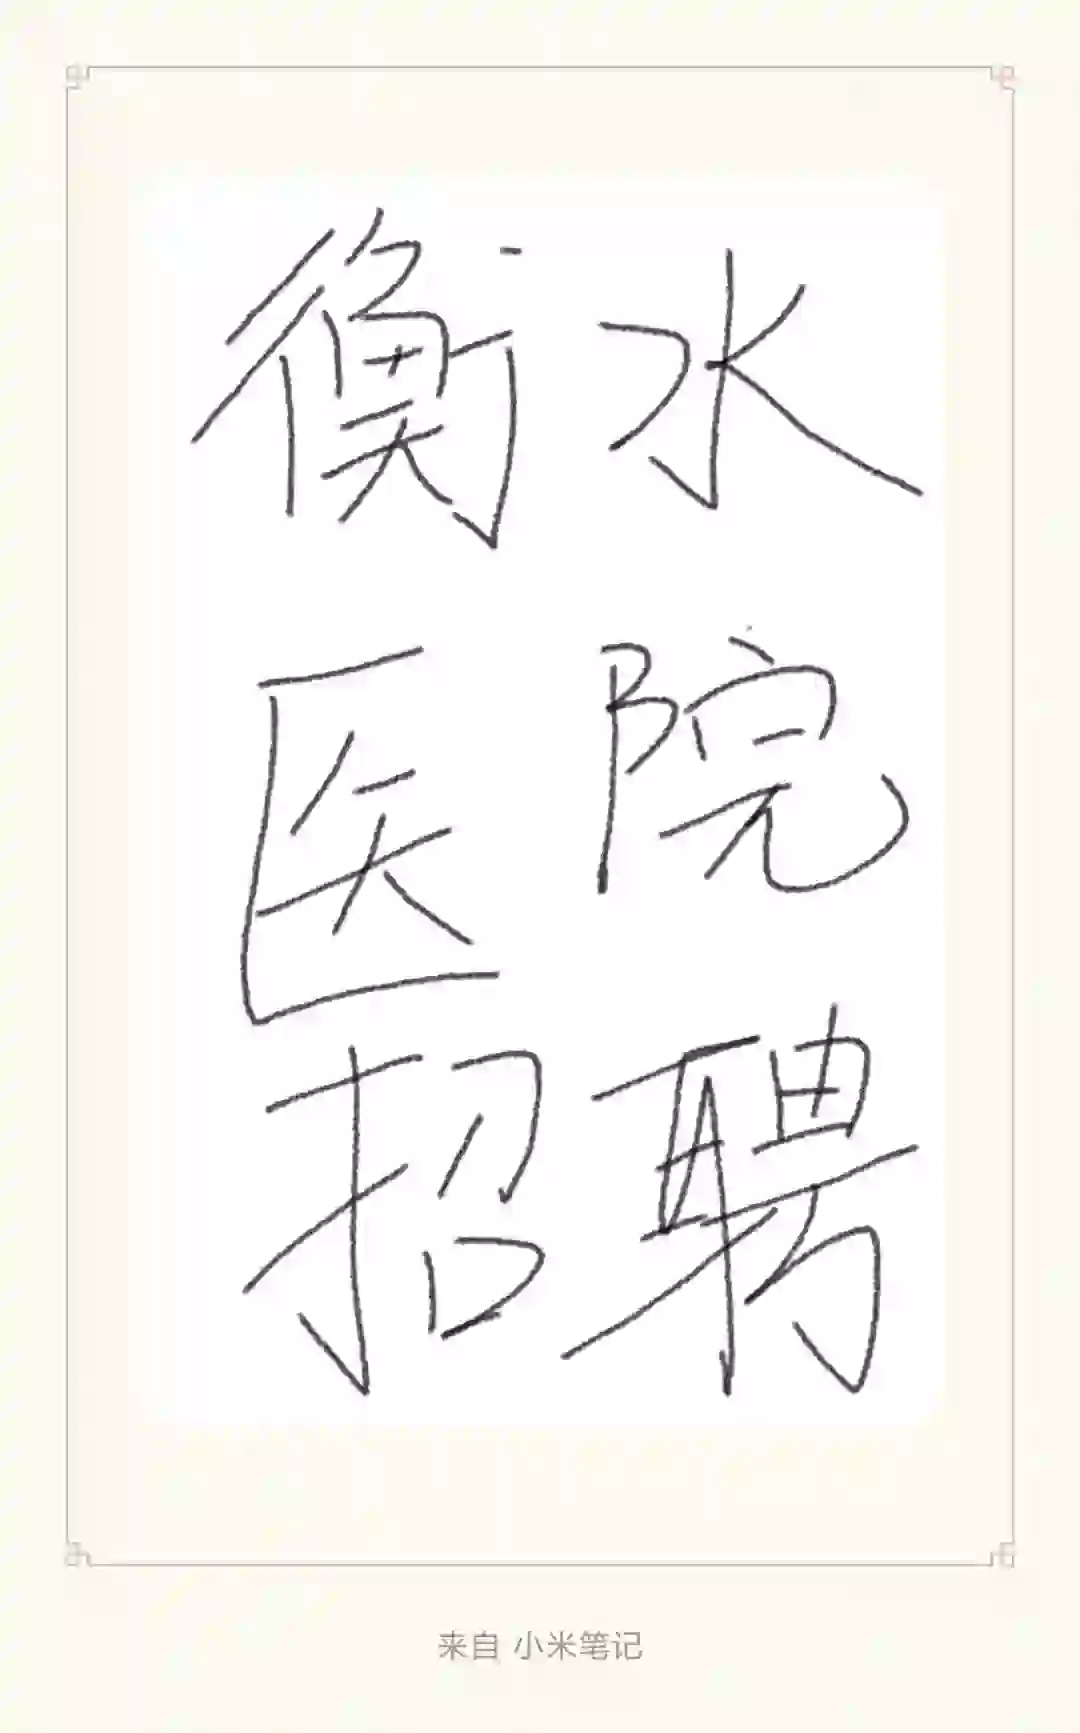 衡水
医院
招聘
来自 小米笔记